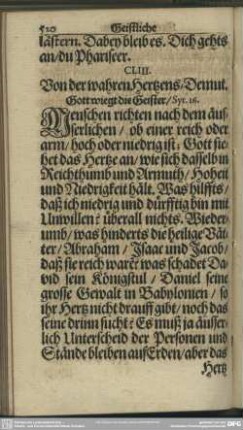 520 Geistliche
lästern. Dabey bleib es. Dich gehts
an/du Phariseer.
CLIII.
Von der wahren Hertzens/Demut.
Gott wiegt die Geister/Syr. 16.
Menschen richten nach dem äus-
serlichen/ob einer reich oder
arm/hoch oder niedrig ist; Gott sie-
het das Hertze an/wie sich dasselb in
Reichthumb und Armuth/Hoheit
und Niedrigkeit hält. Was hilffts/
daß ich niedrig und dürfftig bin mit
Unwillen? überall nichts. Wieder-
umb/was hinderts die heilige Vä-
ter/Abraham/Isaac und Jacob/
daß sie reich warē? was schadet Da-
vid sein Königstul/Daniel seine
grosse Gewalt in Babylonien/so
ihr Hertz nicht drauff gibt/noch das
seine drinn sucht? Es muß ja äusser-
lich Unterscheid der Personen und
Stände bleiben auf Erden/aber das
Hertz